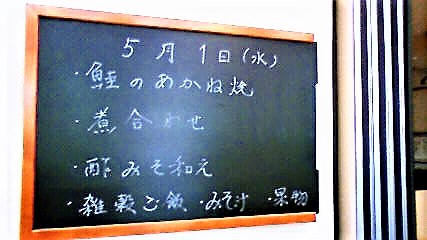 5月1日(水)
・鮭のあかね焼
・煮合わせ
・酢みそ和え
・雑穀ご飯 ・みそ汁 ・果物